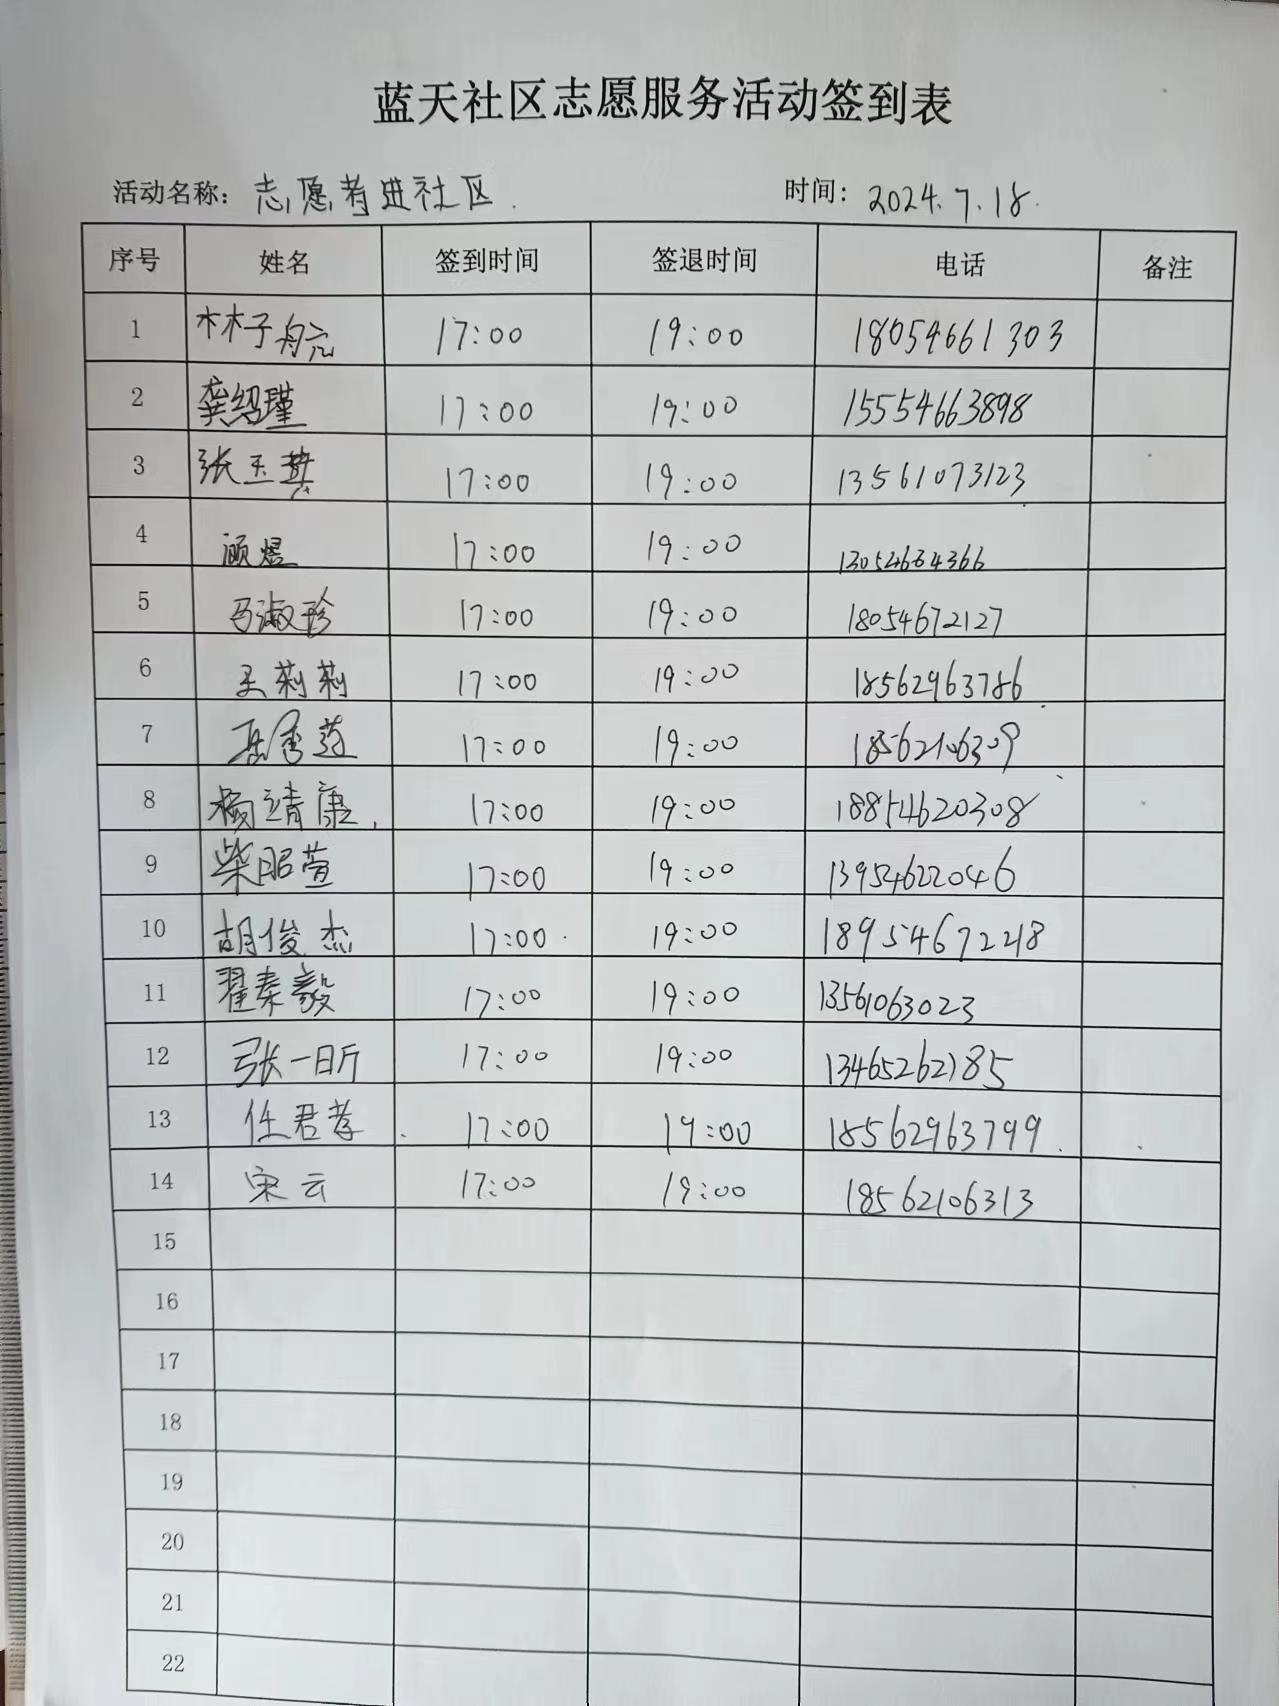 蓝天社区志愿服务活动签到表
活动名称：志愿者进社区. 时间：2024.7.18.
序号 姓名 签到时间 签退时间 电话 备注
1 17:00 19:00 18054661303
2 龚绍瑾 17:00 19:00 15554663898
3 张玉英 17:00 19:00 13561073123
4 顾煜 17:00 19:00
5 马淑珍 17:00 19:00 18054672127
6 王莉莉 17:00 19:00 18562963786
7 17:00 19:00 18562106309
8 杨靖康 17:00 19:00 18854620308
9 柴昭萱 17:00 19:00 13954622046
10 胡俊杰 17:00 19:00 18954672218
11 翟秦毅 17:00 19:00 13561063023
12 张一昕 17:00 19:00 13465262185
13 任君孝 17:00 19:00 18562963799
14 宋云 17:00 19:00 18562106313
15
16
17
18
19
20
21
22